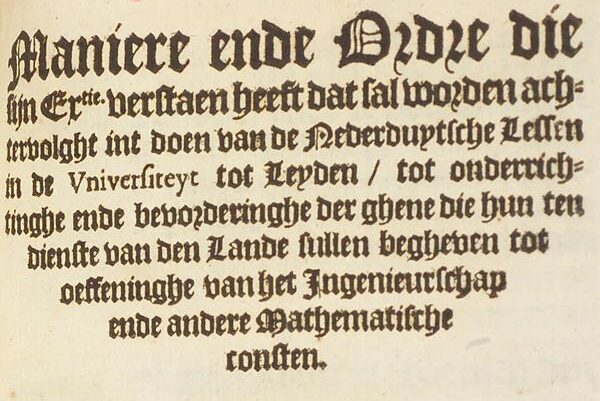 Maniere ende Ordre die
sijn Ex.tie. verstaen heeft dat sal worden ach-
tervolght int doen van de Nederduytsche Lessen
in de Vniversiteyt tot Leyden / tot onderrich-
tinghe ende bevorderinghe der ghene die hun ten
dienste van den Lande sullen begheven tot
oeffeninghe van het Ingenieurschap
ende andere Mathematische
consten.